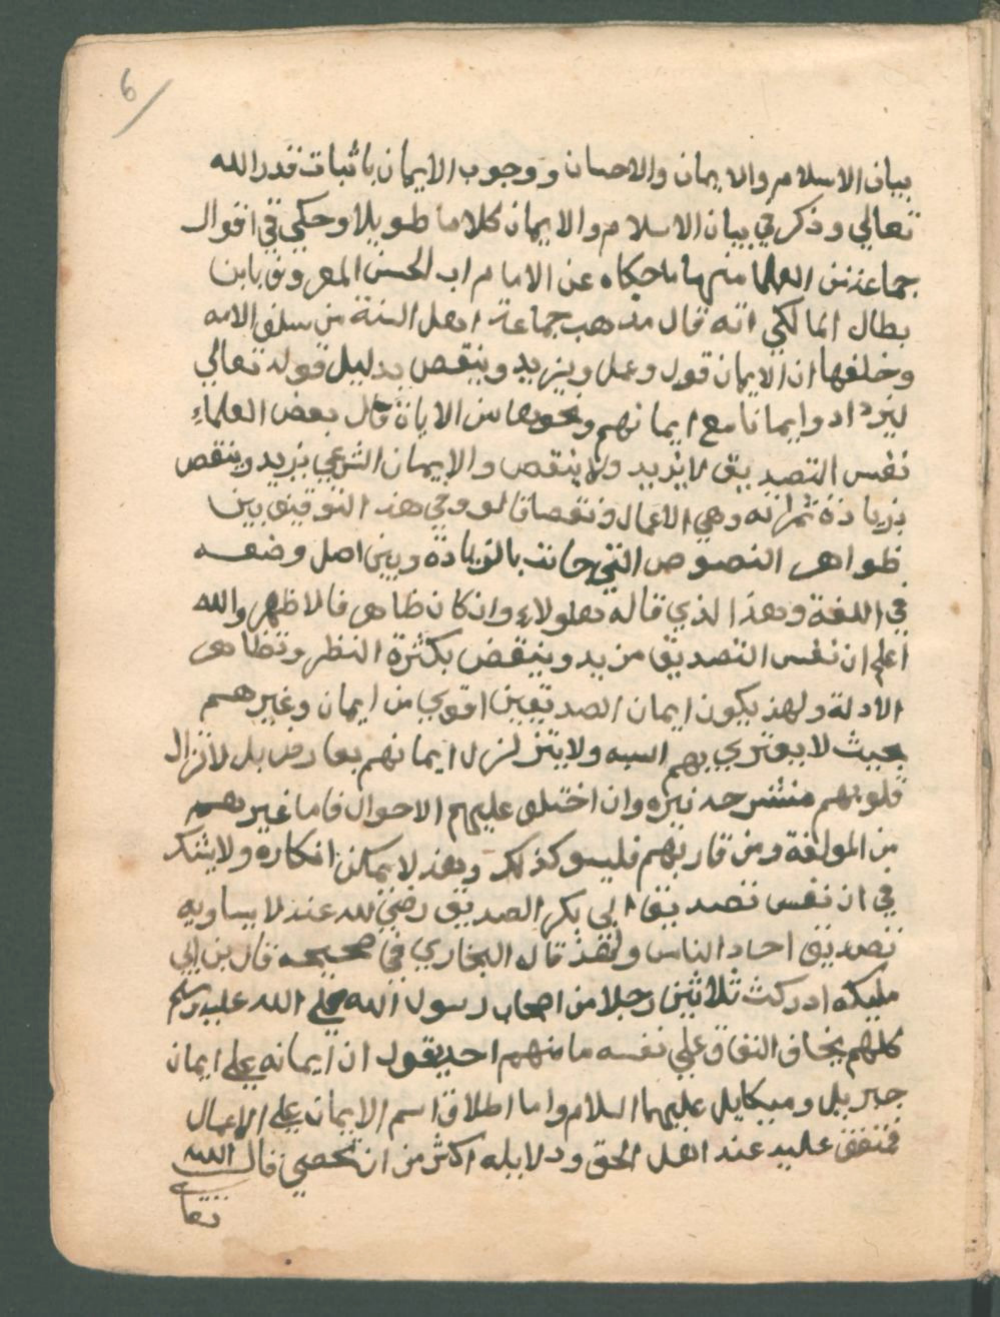 6
بيان الاسلام والايمان والاحسان ووجوب الايمان باثبات قدر الله
تعالي وذكر في بيان الاسلام والايمان كلاما طويلا وحكي في اقوال
جماعة من العلما منها ما حكاه عن الامام اب الحسن المعروف بابن
بطال المالكي انه قال مذهب جماعة اهل السنة من سلف الامه
وخلفها ان الايمان قول وعمل ويزيد وينقص بدليل قوله تعالي
ليزدادوا ايمانا مع ايمانهم ونحوها من الاياة قال بعض العلماء
نفس التصديق لا يزيد ولا ينقص والايمان الشرعي يزيد وينقص
بزيادة ثمراته وهي الاعمال ونقصانها وفي هذا التوفيق بين
ظواهر النصوص التي جات بالزيادة وبين اصل وضعه
في اللغة وهذا الذي قاله هولاء وان كان ظاهر فالاظهر والله
اعلم ان نفس التصديق يزيد وينقص بكثرة النظر وتظاهر
الادلة ولهذ يكون ايمان الصديقين اقوي من ايمان وغيرهم
بحيث لا يعتري بهم السبه ولا يتزلزل ايمانهم بعارض بل لا تزال
قلوبهم منشرحه نيره وان اختلف عليهم الاحوال فاما غيرهم
من المولفة ومن قاربهم فليسو كذلك وهذ لا يمكن انكاره ولا يشك
في ان نفس تصديق ابي بكر الصديق رضي الله عنه لا يساويه
تصديق احاد الناس ولهذ قال البخاري في صحيحه قال بن ابي
مليكه ادركت ثلاثين رجلا من اصحاب رسول الله صلي الله عليه وسلم
كلهم يخاف النفاق علي نفسه ما منهم احد يقول ان ايمانه علي ايمان
جبريل وميكايل عليهما السلام واما اطلاق اسم الايمان علي الاعمال
فمتفق عليه عند اهل الحق ودلايله اكثر من ان تحصي قال الله
تعا